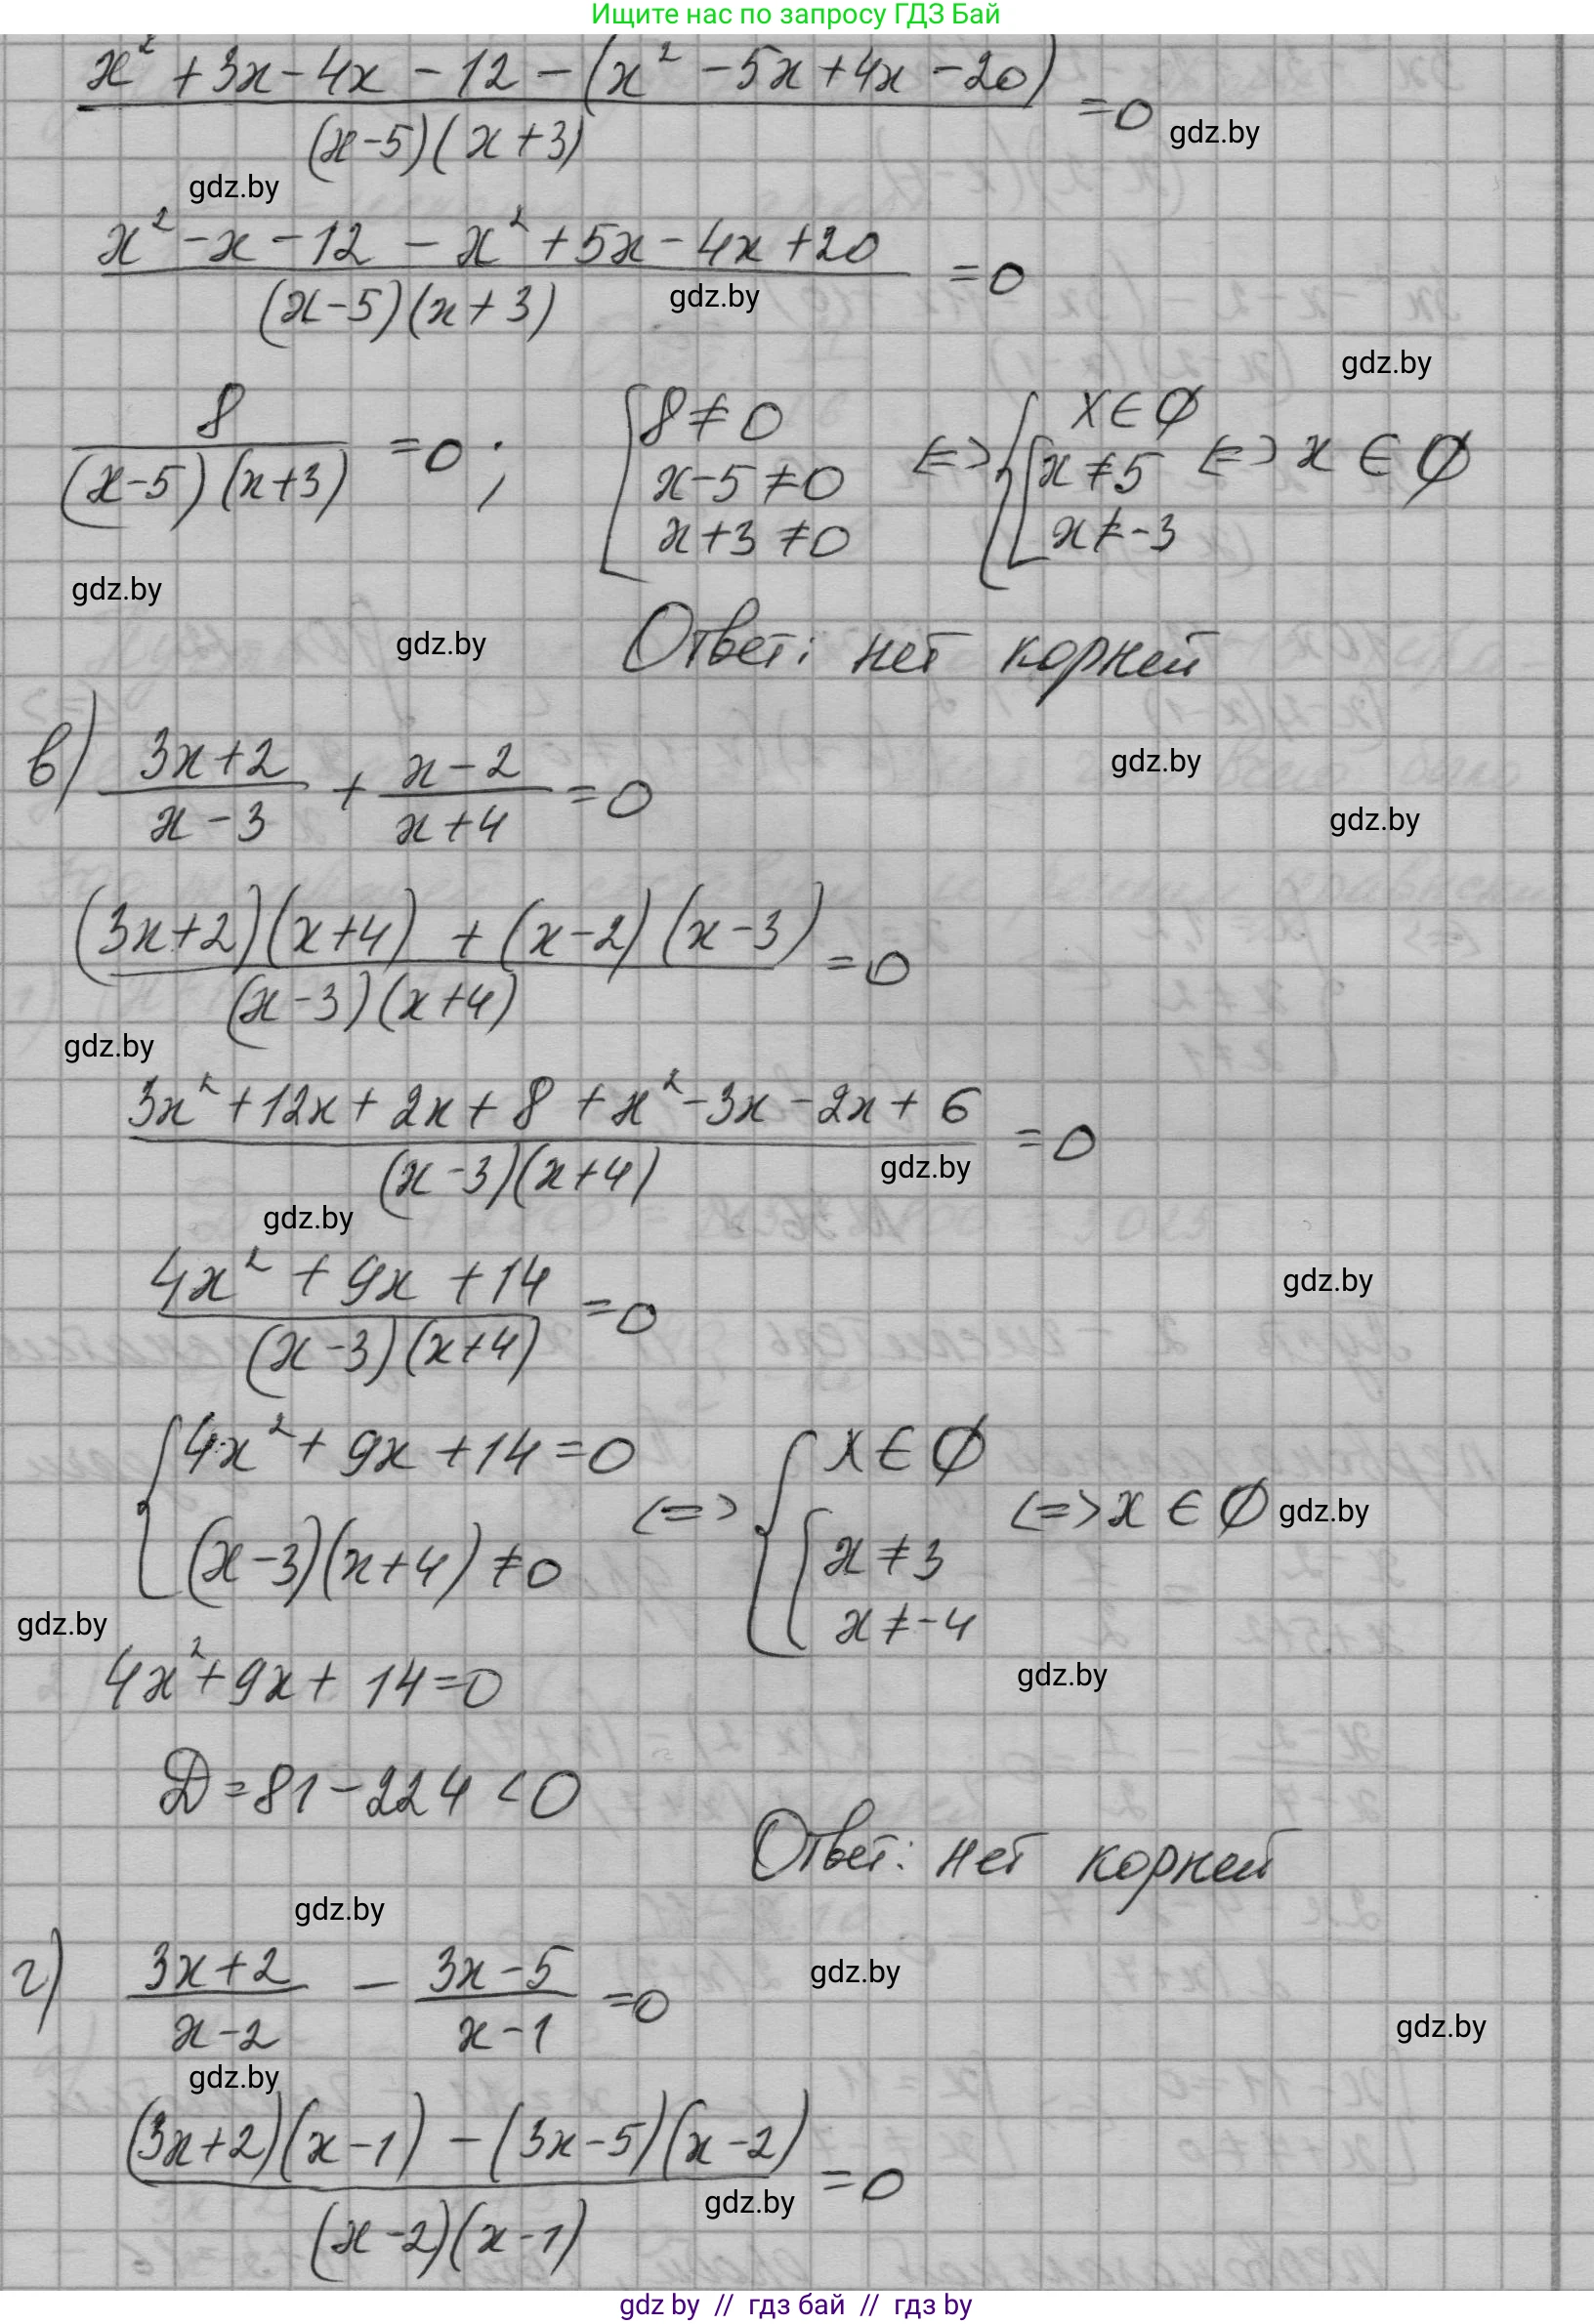 Ищите нас по запросу ГДЗ Бай
(x² + 3x - 4x - 12 - (x² - 5x + 4x - 20)) / ((x-5)(x+3)) = 0
gdz.by
gdz.by
(x² - x - 12 - x² + 5x - 4x + 20) / ((x-5)(x+3)) = 0
gdz.by
gdz.by
8 / ((x-5)(x+3)) = 0; { 8 ≠ 0 x-5 ≠ 0 x+3 ≠ 0 <=> { x ∈ ∅ [ x ≠ 5 x ≠ -3 <=> x ∈ ∅
gdz.by
gdz.by
Ответ: нет корней
в) (3x+2)/(x-3) + (x-2)/(x+4) = 0
gdz.by
gdz.by
((3x+2)(x+4) + (x-2)(x-3)) / ((x-3)(x+4)) = 0
gdz.by
(3x² + 12x + 2x + 8 + x² - 3x - 2x + 6) / ((x-3)(x+4)) = 0
gdz.by
gdz.by
(4x² + 9x + 14) / ((x-3)(x+4)) = 0
gdz.by
{ 4x² + 9x + 14 = 0 (x-3)(x+4) ≠ 0 <=> { x ∈ ∅ { x ≠ 3 x ≠ -4 <=> x ∈ ∅
gdz.by
gdz.by
4x² + 9x + 14 = 0
gdz.by
D = 81 - 224 < 0
Ответ: нет корней
gdz.by
г) (3x+2)/(x-2) - (3x-5)/(x-1) = 0
gdz.by
gdz.by
gdz.by
((3x+2)(x-1) - (3x-5)(x-2)) / ((x-2)(x-1)) = 0
gdz.by
gdz by // гдз бай // гдз by